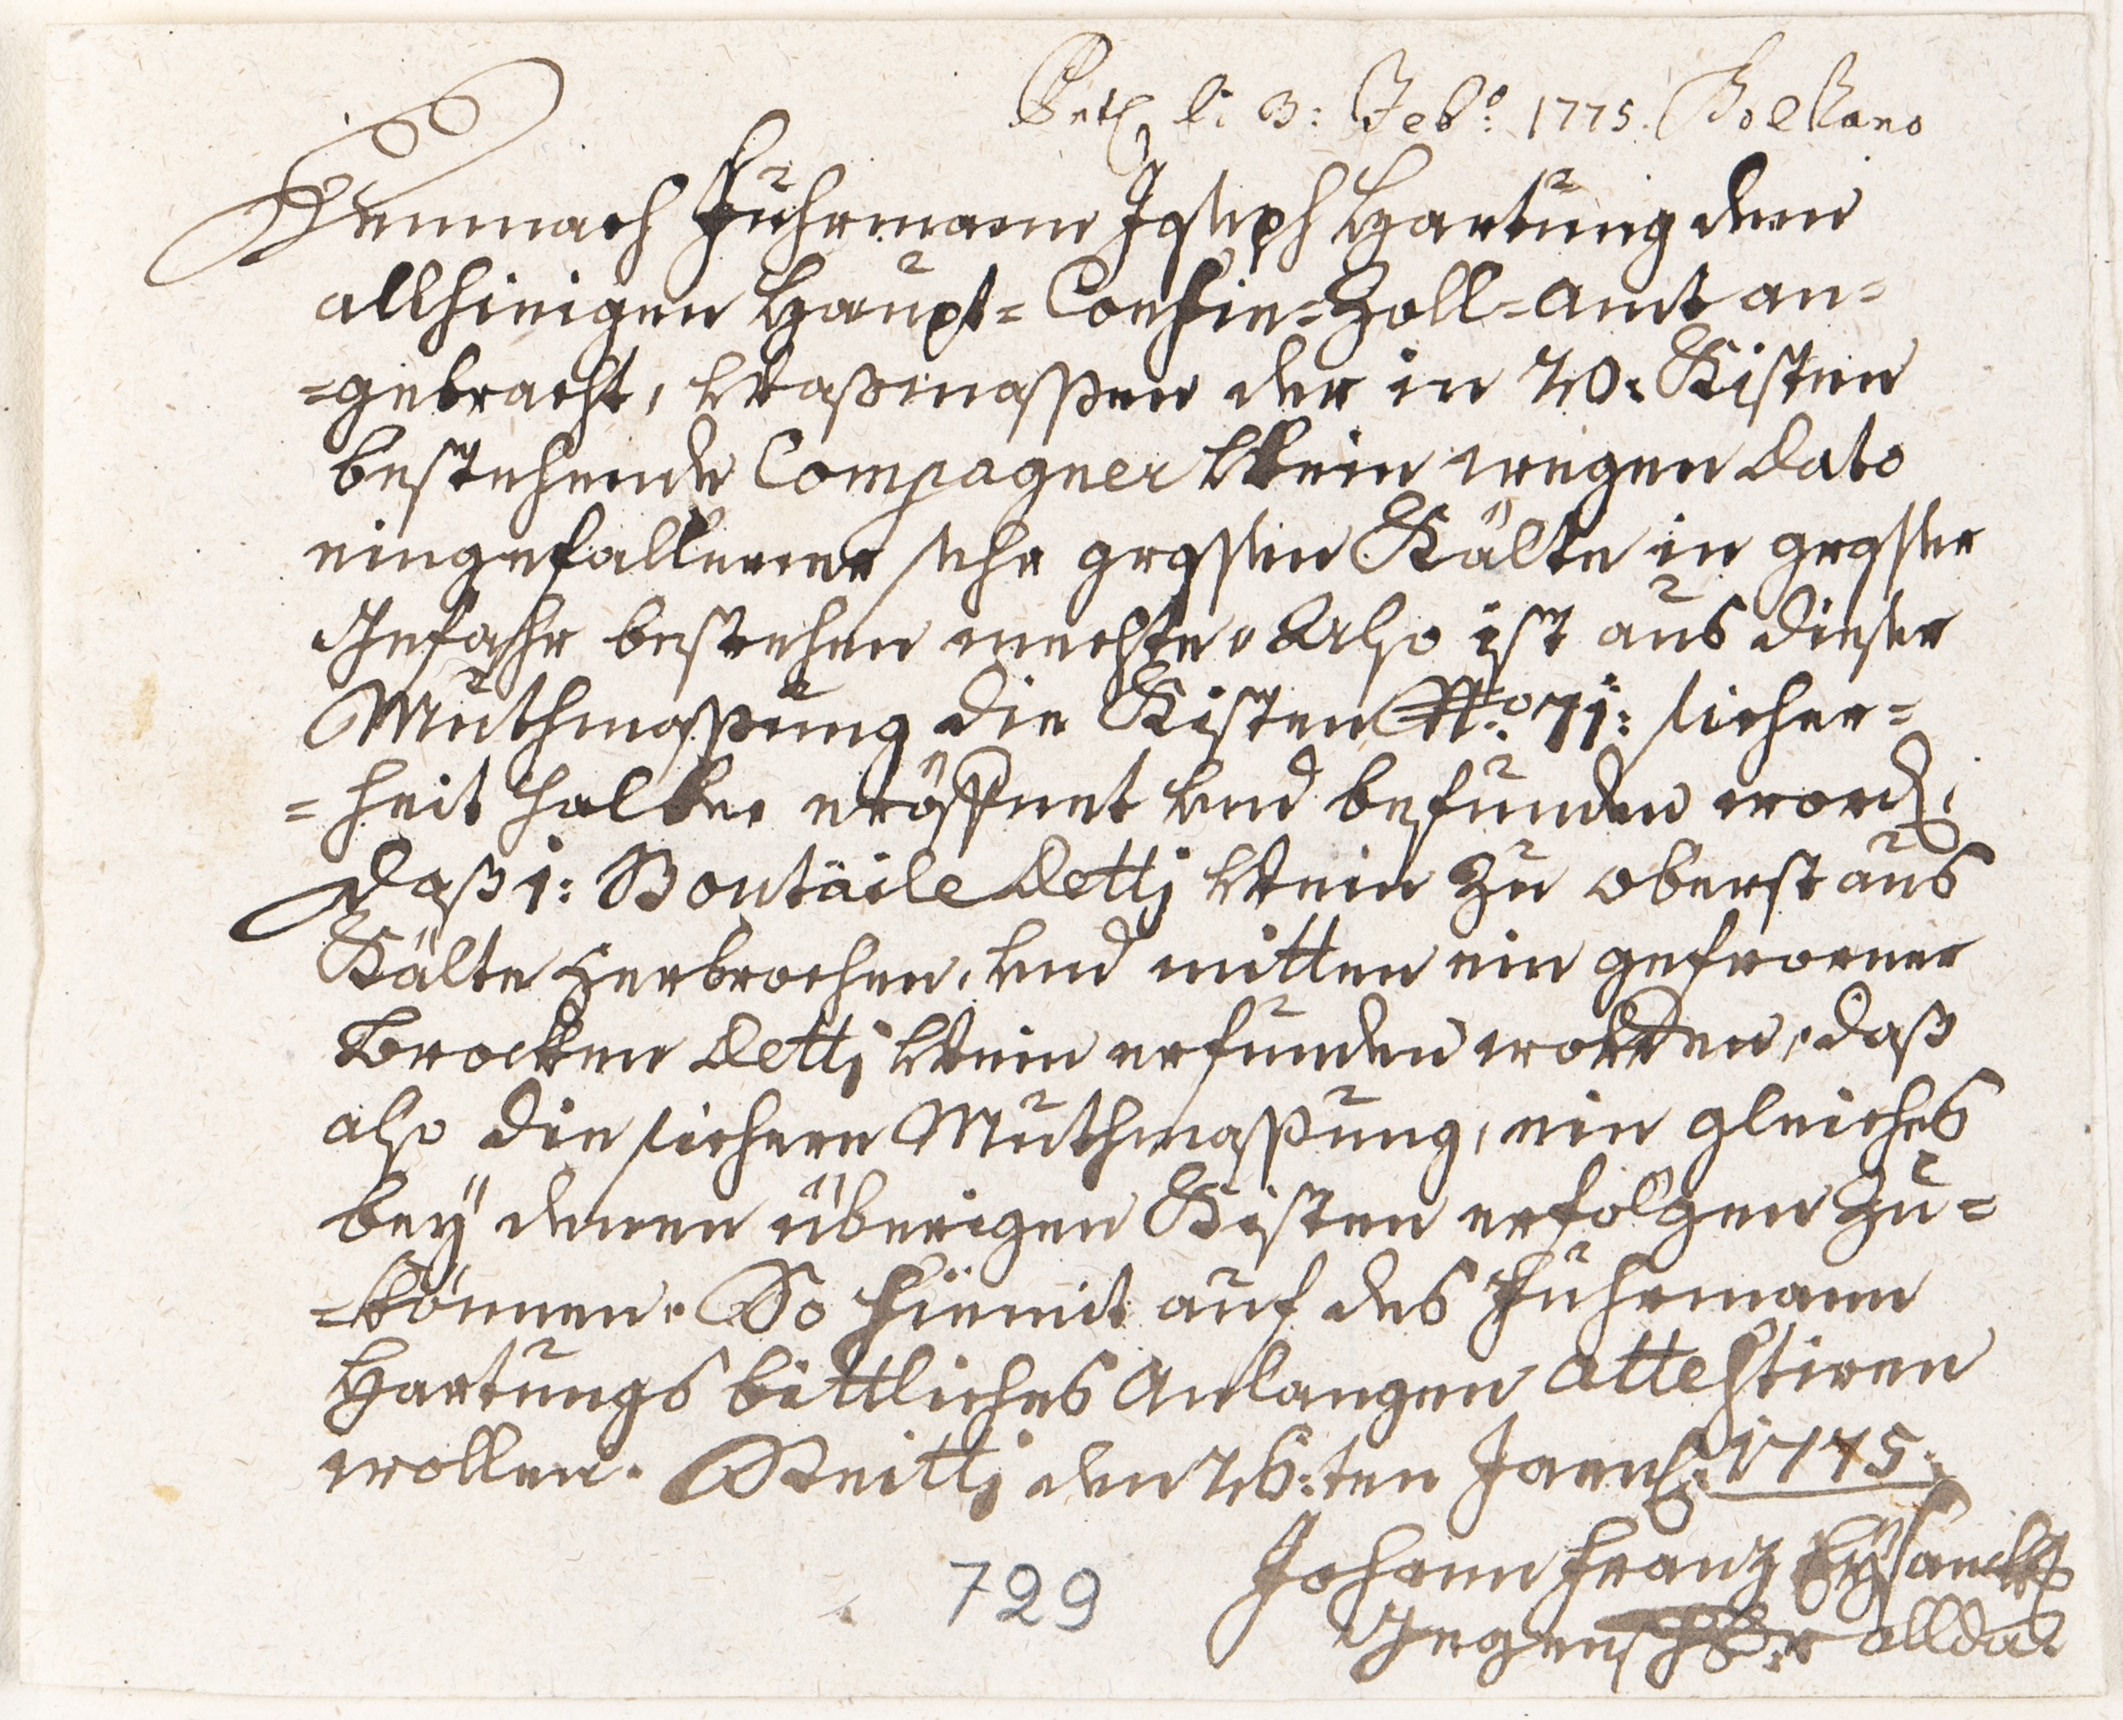 li 3: Feb.o 1775. Bolzano
Demnach Fuhrmann Joseph Hartung dem
allhiesigen Haupt=Confin=Zoll=Amt an=
=gebracht, wasmassen der in 20. Kisten
bestehende Compagner Wein wegen dato
eingefallener sehr grossen Kälte in grosser
Gefahr bestehen mechte. Also ist aus dieser
Muthmassung die Kisten No. 71: sicher=
=heit halber eröffnet und befunden word,
daß 1: Boutäile detti Wein zu oberst aus
Kälte zerbrochen, und mitten ein gefrorner
Brocken detti Wein erfunden worden, daß
also die sichere Muthmassung, ein gleiches
bey denen überigen Kisten erfolgen zu=
=können. So hiemit auf des Fuhrmann
Hartungs bittliches Anlangen attestiren
wollen. Reitti den 26:ten 1775.
Johann Franz
alldar
729